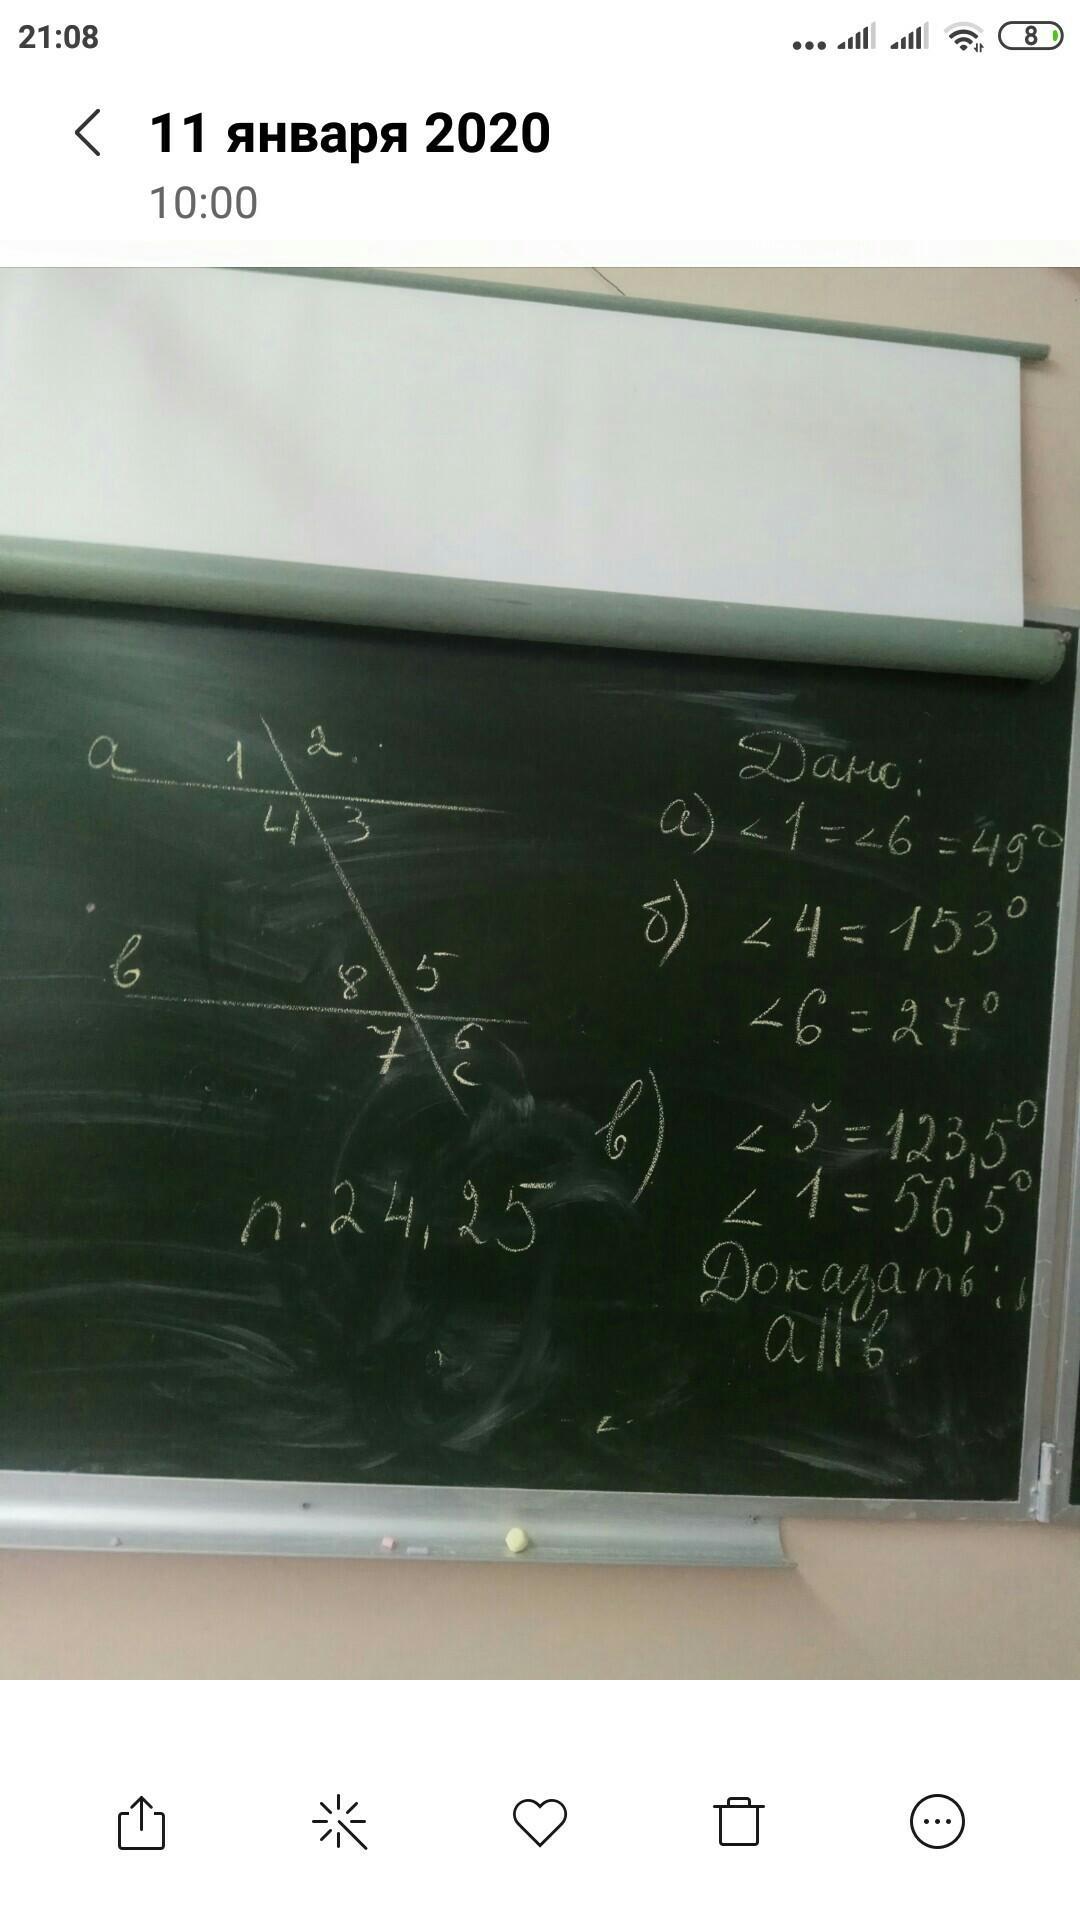 21:08
8
11 января 2020
10:00
а 1 2
4 3
в 8 5
7 6
с
п. 24, 25
Дано:
а) ∠1 = ∠6 = 49°
б) ∠4 = 153°
∠6 = 27°
в) ∠5 = 123,5°
∠1 = 56,5°
Доказать:
а||в